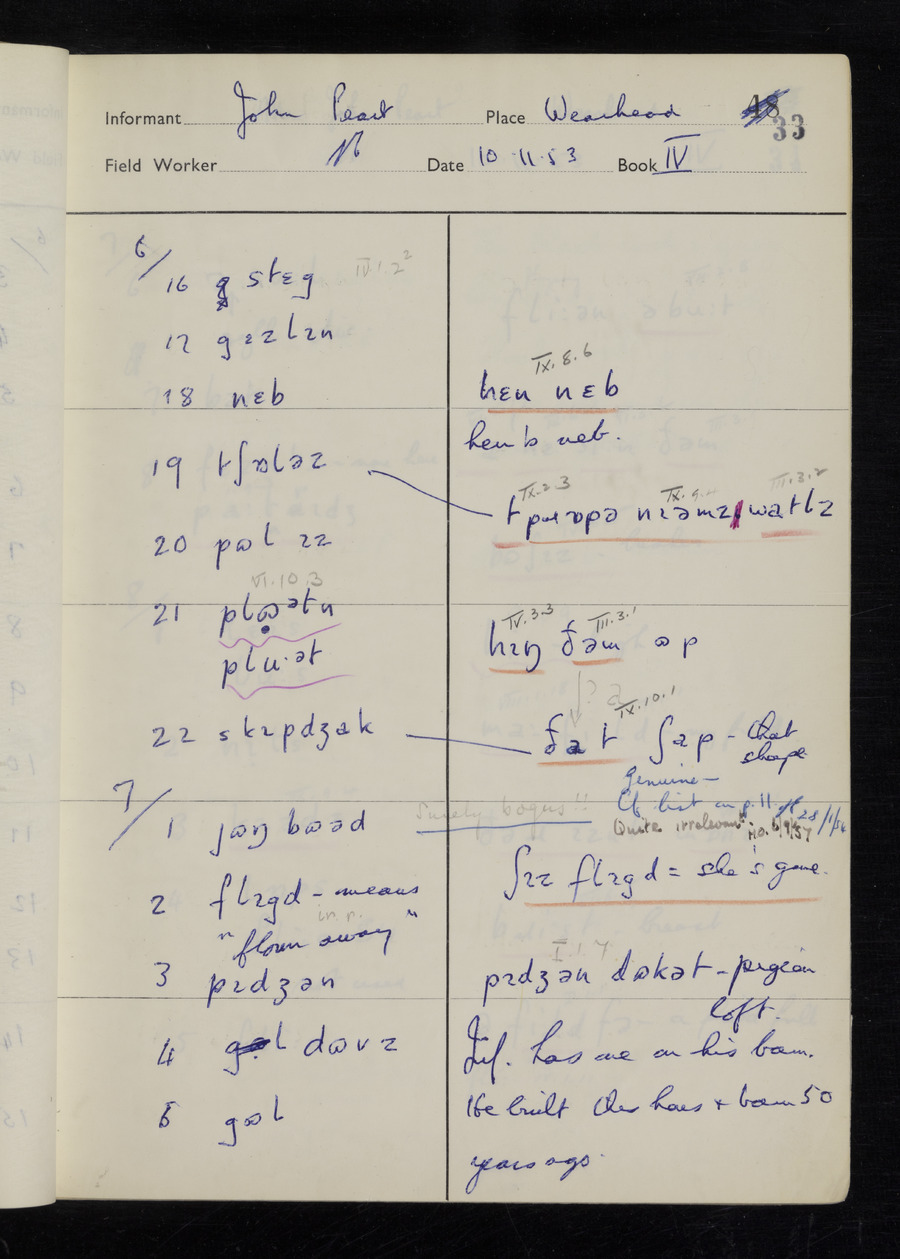 Informant John Peart Place Wearhead 48
33
Field Worker Date 10·11·53 Book IV
6/
16 g stɛg IV.1.2²
17 gɛzlɪn
18 nɛb
19 tʃɒləz
20 pʊl ɪz
VI.10.3
21 plʊətn
plu·ət
22 skɪpdʒak
7/
1 jʊŋ bʊəd
2 flɪgd – means
in. r.
"flown away"
3 pɪdʒən
4 gʊl dʊvz
5 gʊl
IX.8.6
hɛn nɛb
hen's neb.
IX.2.3 III.3.2
tpɹɒpə nɪəmz watlz
IV.3.3 III.3.1
hɪŋ ðəm ʊp
? a
IX.10.1
ðat ʃap – that
shape
Surely bogus!!
Genuine –
Cf. list on p. 11. 28/1/54
Quite irrelevant. H.O. 6/9/57
ʃɪz flɪgd = she's gone.
I.1.7
pɪdʒən dʊkət – pigeon
loft.
Inf. has one on his barn.
He built the house + barn 50
years ago.